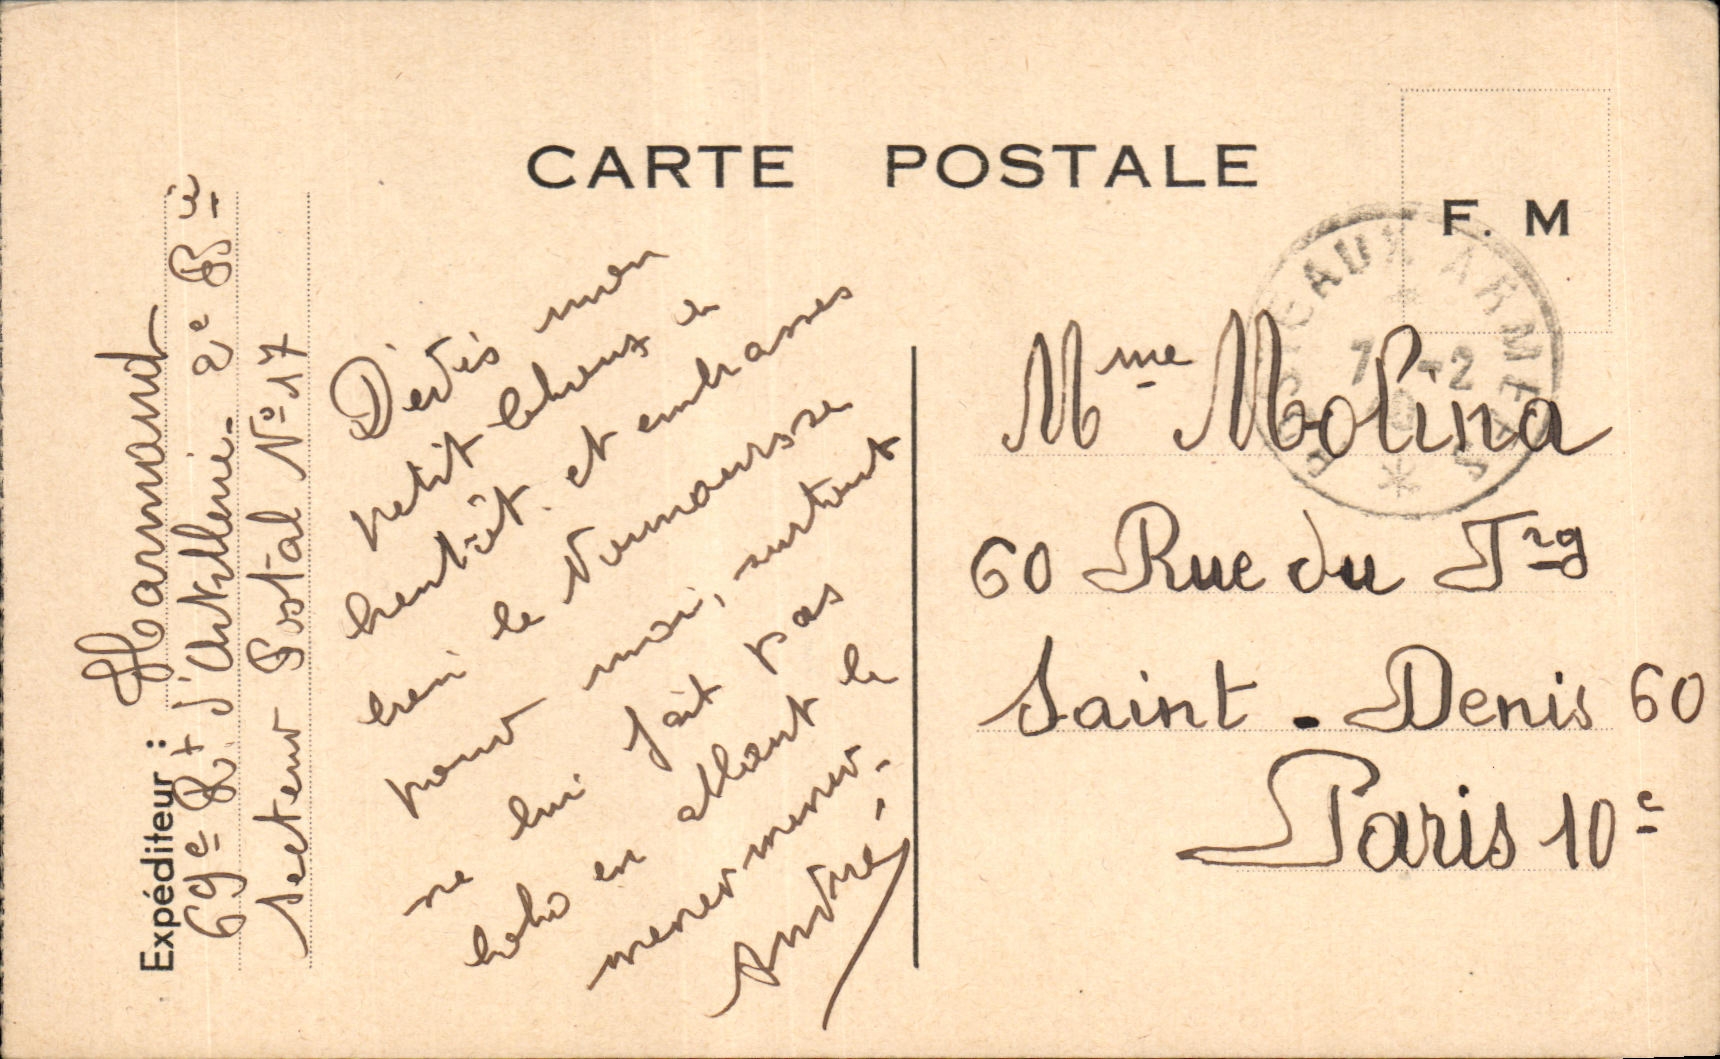 CARTE POSTALE
F. M
POSTE AUX ARMEES
7 -2
Expéditeur : Harmand
69e Rt d'Artillerie. 2e Bie
Secteur Postal No 17
mon
petit
bientôt. et embrasses
bien le
pour moi, surtout
ne lui fait pas
bobo en allant le
André
Mme Molina
60 Rue du Frg
Saint-Denis 60
Paris 10e